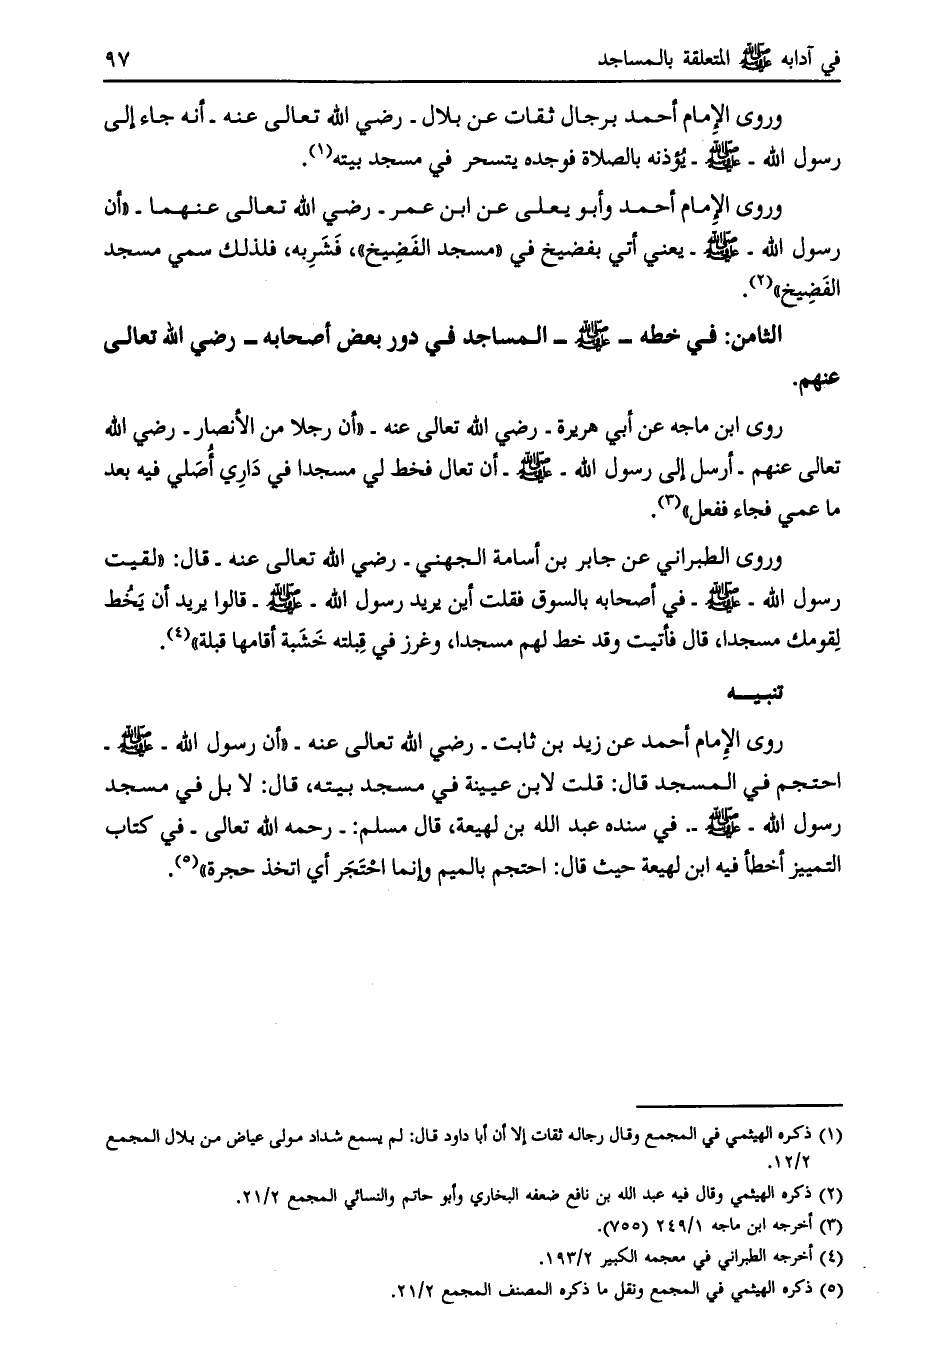 في آدابه ﷺ المتعلقة بالمساجد ٩٧
وروى الإمام أحمد برجال ثقات عن بلال ـ رضي الله تعالى عنه ـ أنه جاء إلى
رسول الله ـ ﷺ ـ يُؤذنه بالصلاة فوجده يتسحر في مسجد بيته(١).
وروى الإِمام أحمد وأبو يعلى عن ابن عمر ـ رضي الله تعالى عنهما ـ «أن
رسول الله ـ ﷺ ـ يعني أتي بفضيخ في «مسجد الفَضِيخ»، فَشَرِبه، فلذلك سمي مسجد
الفَضِيخ»(٢).
الثامن: في خطه ـ ﷺ ـ المساجد في دور بعض أصحابه ـ رضي الله تعالى
عنهم.
روى ابن ماجه عن أبي هريرة ـ رضي الله تعالى عنه ـ «أن رجلا من الأنصار ـ رضي الله
تعالى عنهم ـ أرسل إلى رسول الله ـ ﷺ ـ أن تعال فخط لي مسجدا في دَارِي أُصَلي فيه بعد
ما عمي فجاء ففعل»(٣).
وروى الطبراني عن جابر بن أسامة الجهني ـ رضي الله تعالى عنه ـ قال: «لقيت
رسول الله ـ ﷺ ـ في أصحابه بالسوق فقلت أين يريد رسول الله ـ ﷺ ـ قالوا يريد أن يَخُط
لِقومك مسجدا، قال فأتيت وقد خط لهم مسجدا، وغرز في قِبلته خَشَبة أقامها قبلة»(٤).
تنبيـــه
روى الإِمام أحمد عن زيد بن ثابت ـ رضي الله تعالى عنه ـ «أن رسول الله ـ ﷺ ـ
احتجم في المسجد قال: قلت لابن عيينة في مسجد بيته، قال: لا بل في مسجد
رسول الله ـ ﷺ ـ. في سنده عبد الله بن لهيعة، قال مسلم: ـ رحمه الله تعالى ـ في كتاب
التمييز أخطأ فيه ابن لهيعة حيث قال: احتجم بالميم وإنما احْتَجَر أي اتخذ حجرة»(٥).
(١) ذكره الهيثمي في المجمع وقال رجاله ثقات إلا أن أبا داود قال: لم يسمع شداد مولى عياض من بلال المجمع
١٢/٢.
(٢) ذكره الهيثمي وقال فيه عبد الله بن نافع ضعفه البخاري وأبو حاتم والنسائي المجمع ٢١/٢.
(٣) أخرجه ابن ماجه ٢٤٩/١ (٧٥٥).
(٤) أخرجه الطبراني في معجمه الكبير ١٩٣/٢.
(٥) ذكره الهيثمي في المجمع ونقل ما ذكره المصنف المجمع ٢١/٢.